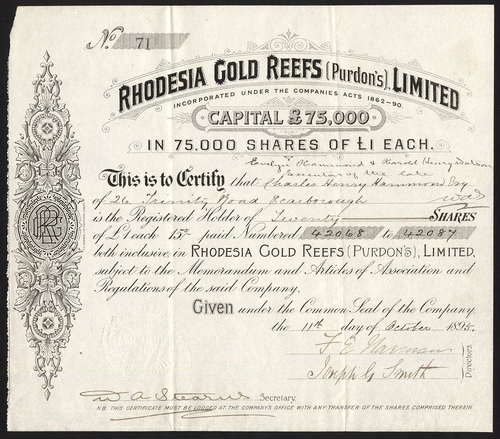 No. 71
RHODESIA GOLD REEFS (PURDON'S), LIMITED
INCORPORATED UNDER THE COMPANIES ACTS 1862-90.
CAPITAL £75,000
IN 75,000 SHARES OF £1 EACH.
Hammond & Harold Henry
Executors of the late
This is to Certify that Charles Henry Hammond Esq
of 26 Trinity Road Scarborough
is the Registered Holder of Twenty SHARES
of £1 each 15/- paid Numbered 42068 to 42087
both inclusive in RHODESIA GOLD REEFS (PURDON'S), LIMITED,
subject to the Memorandum and Articles of Association and
Regulations of the said Company.
Given under the Common Seal of the Company,
the 11th day of October 1895.
F E Harman
Joseph G Smith
Directors
W A Stearns Secretary.
N.B. THIS CERTIFICATE MUST BE LODGED AT THE COMPANY'S OFFICE WITH ANY TRANSFER OF THE SHARES COMPRISED THEREIN.